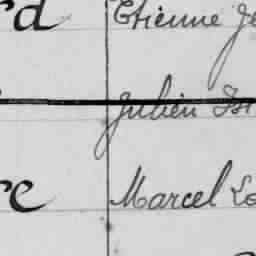 rd Etienne Je
Julien Is
re Marcel Lo